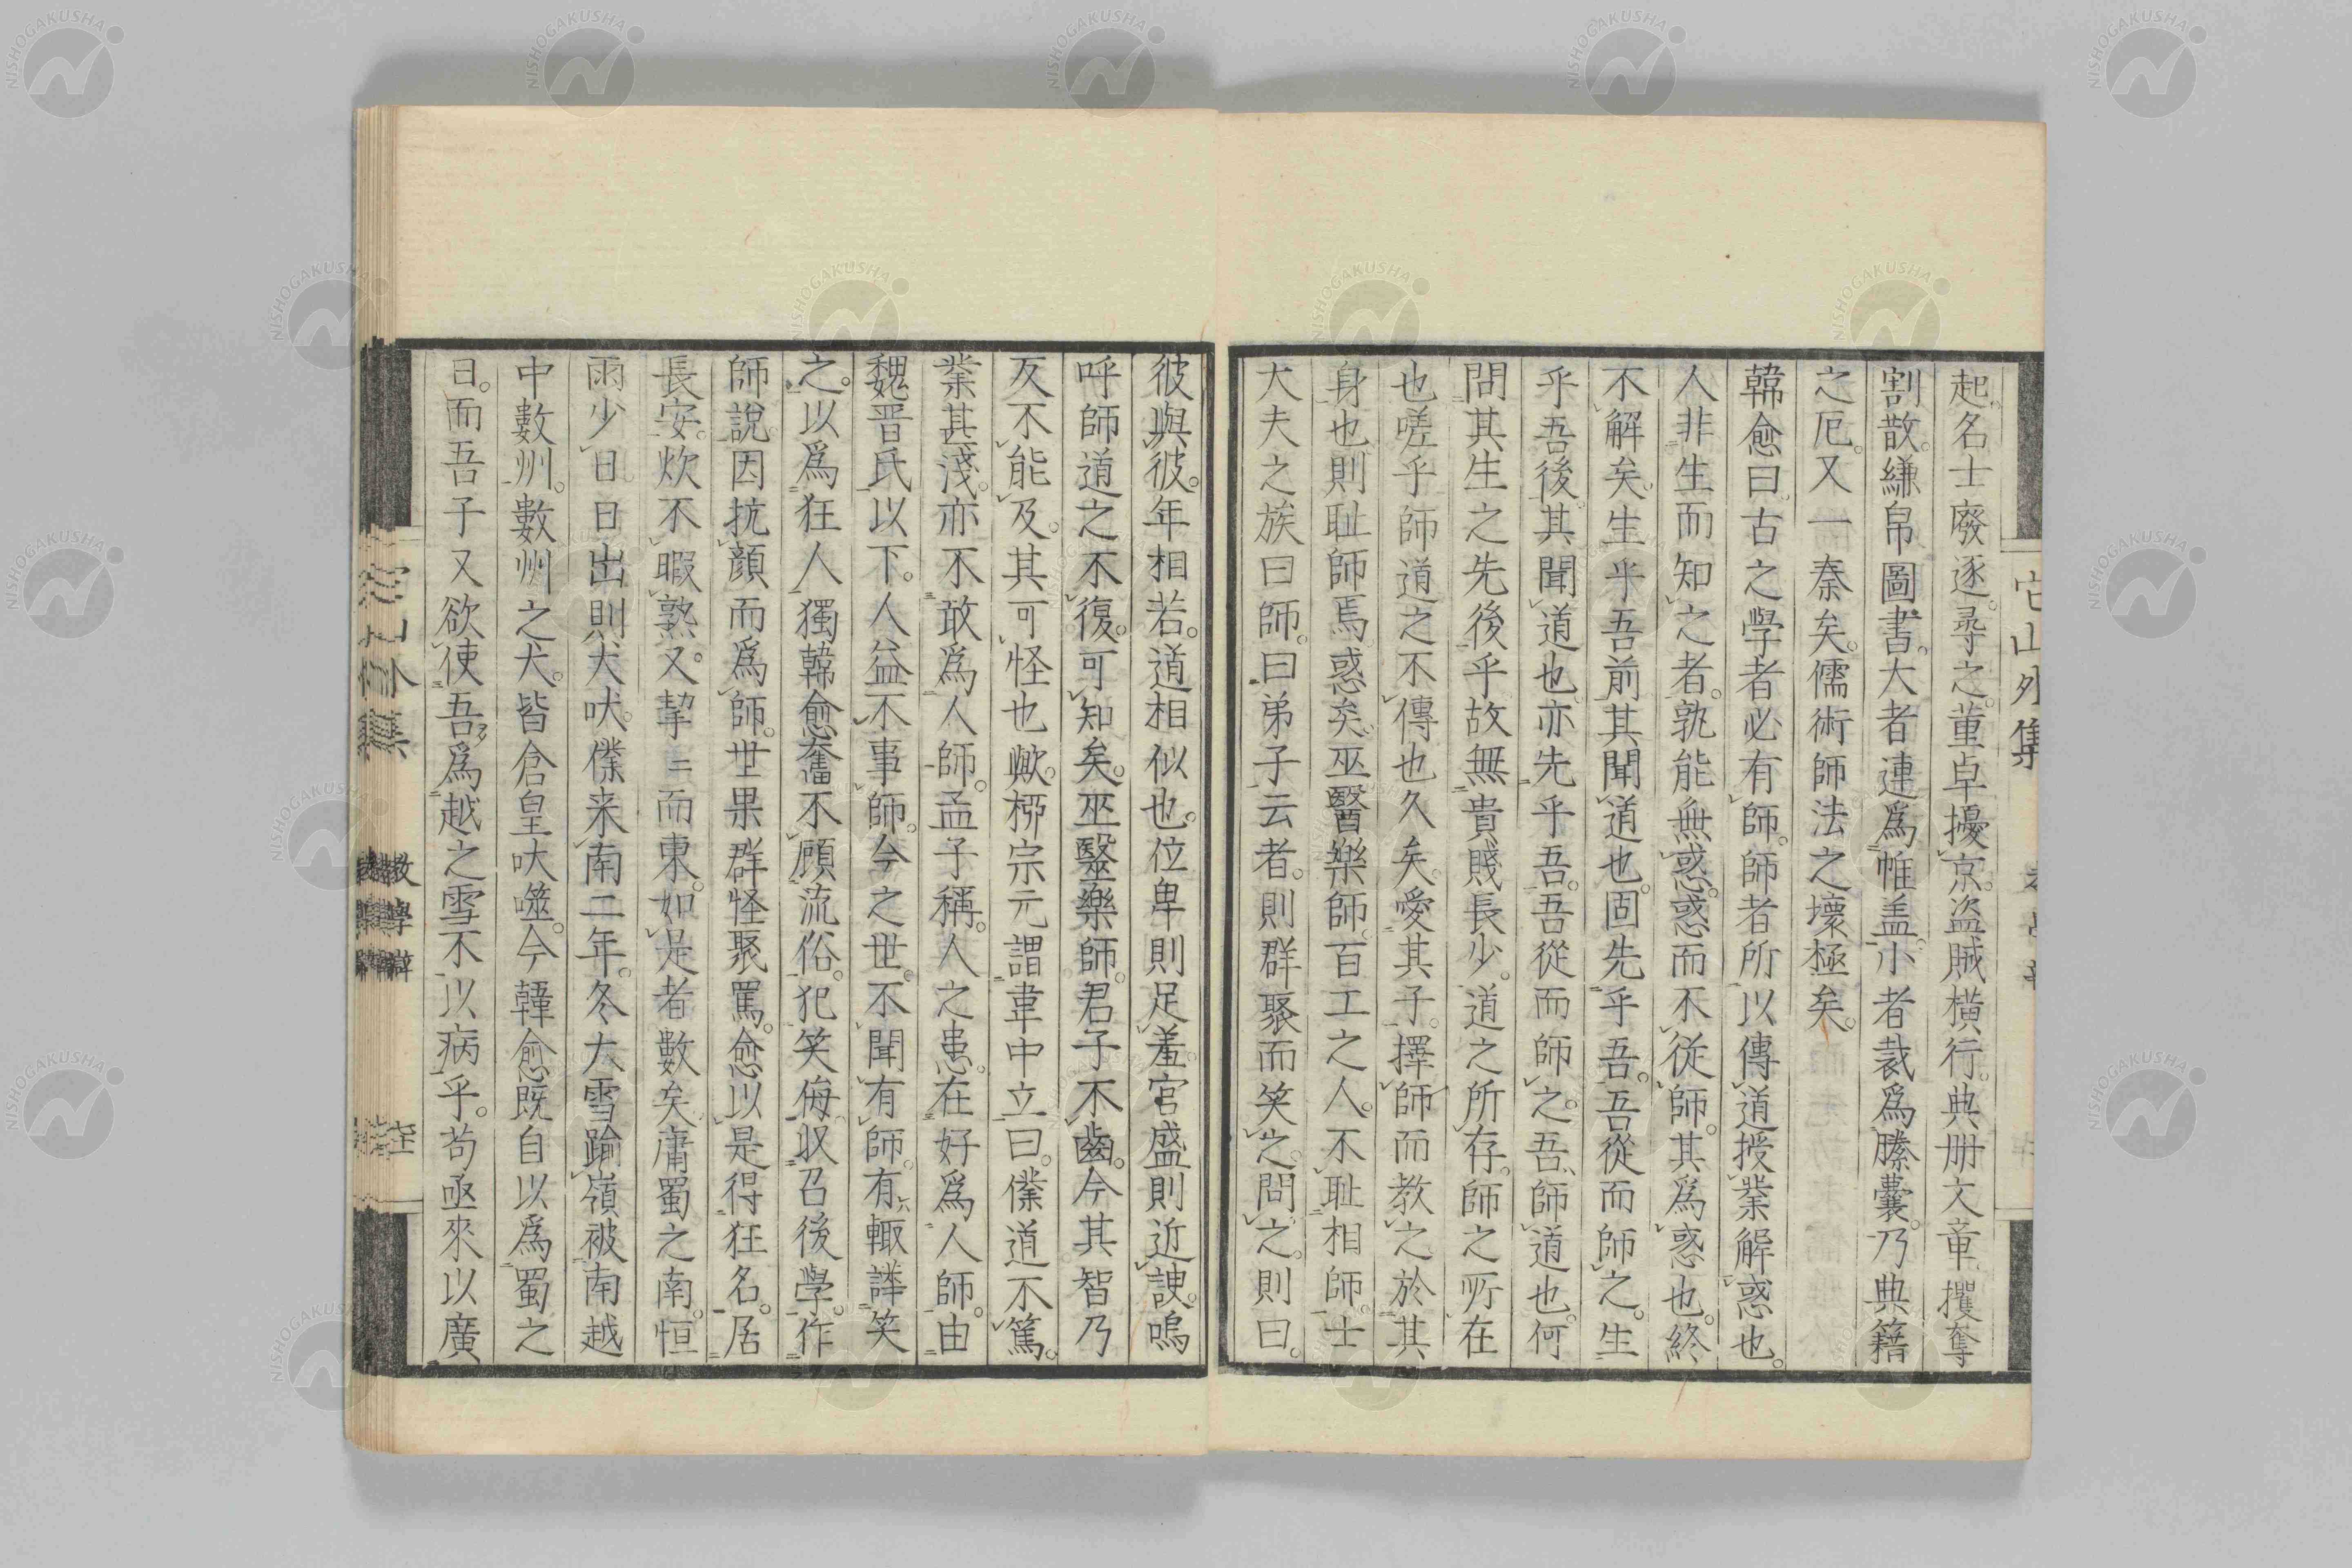 它山外集
起。名士廢逐。尋之。董卓擾京。盜賊橫行。典册文章。攫奪
割散。縑帛圖書。大者連爲帷盖。小者裁爲縢囊。乃典籍
之厄。又一秦矣。儒術師法之壞極矣。
韓愈曰古之學者必有師。師者所以傳道授業解惑也。
人非生而知之者。孰能無惑。惑而不從師。其爲惑也。終
不解矣。生乎吾前其聞道也。固先乎吾。吾從而師之。生
乎吾後。其聞道也。亦先乎吾。吾從而師之。吾師道也。何
問其生之先後乎故無貴賤長少。道之所存。師之所在
也嗟乎師道之不傳也久矣。愛其子。擇師而教之於其
身也。則耻師焉。惑矣。巫醫樂師。百工之人。不耻相師士
大夫之族曰師。曰弟子云者。則群聚而笑之。問之。則曰。
彼與彼。年相若。道相似也。位卑則足羞。官盛則近諛。嗚
呼師道之不復。可知矣。巫醫樂師。君子不齒。今其智乃
反不能及。其可怪也歟。桺宗元謂韋中立曰。僕道不篤。
業甚淺。亦不敢爲人師。孟子稱。人之患。在好爲人師。由
魏晋氏以下。人益不事師。今之世。不聞有師。有輙譁笑
之。以爲狂人。獨韓愈奮不顧流俗。犯笑侮収召後學。作
師說。因抗顔而爲師。世果群怪聚罵。愈以是得狂名。居
長安。炊不暇熟。又挈〻而東。如是者數矣。庸蜀之南。恒
雨少日。日出則犬吠。僕来南二年。冬大雪踰嶺被南越
中數州。數州之犬。皆倉皇吠噬。今韓愈既自以爲蜀之
日。而吾子又欲使吾爲越之雪不以病乎。苟亟來以廣
教學辯